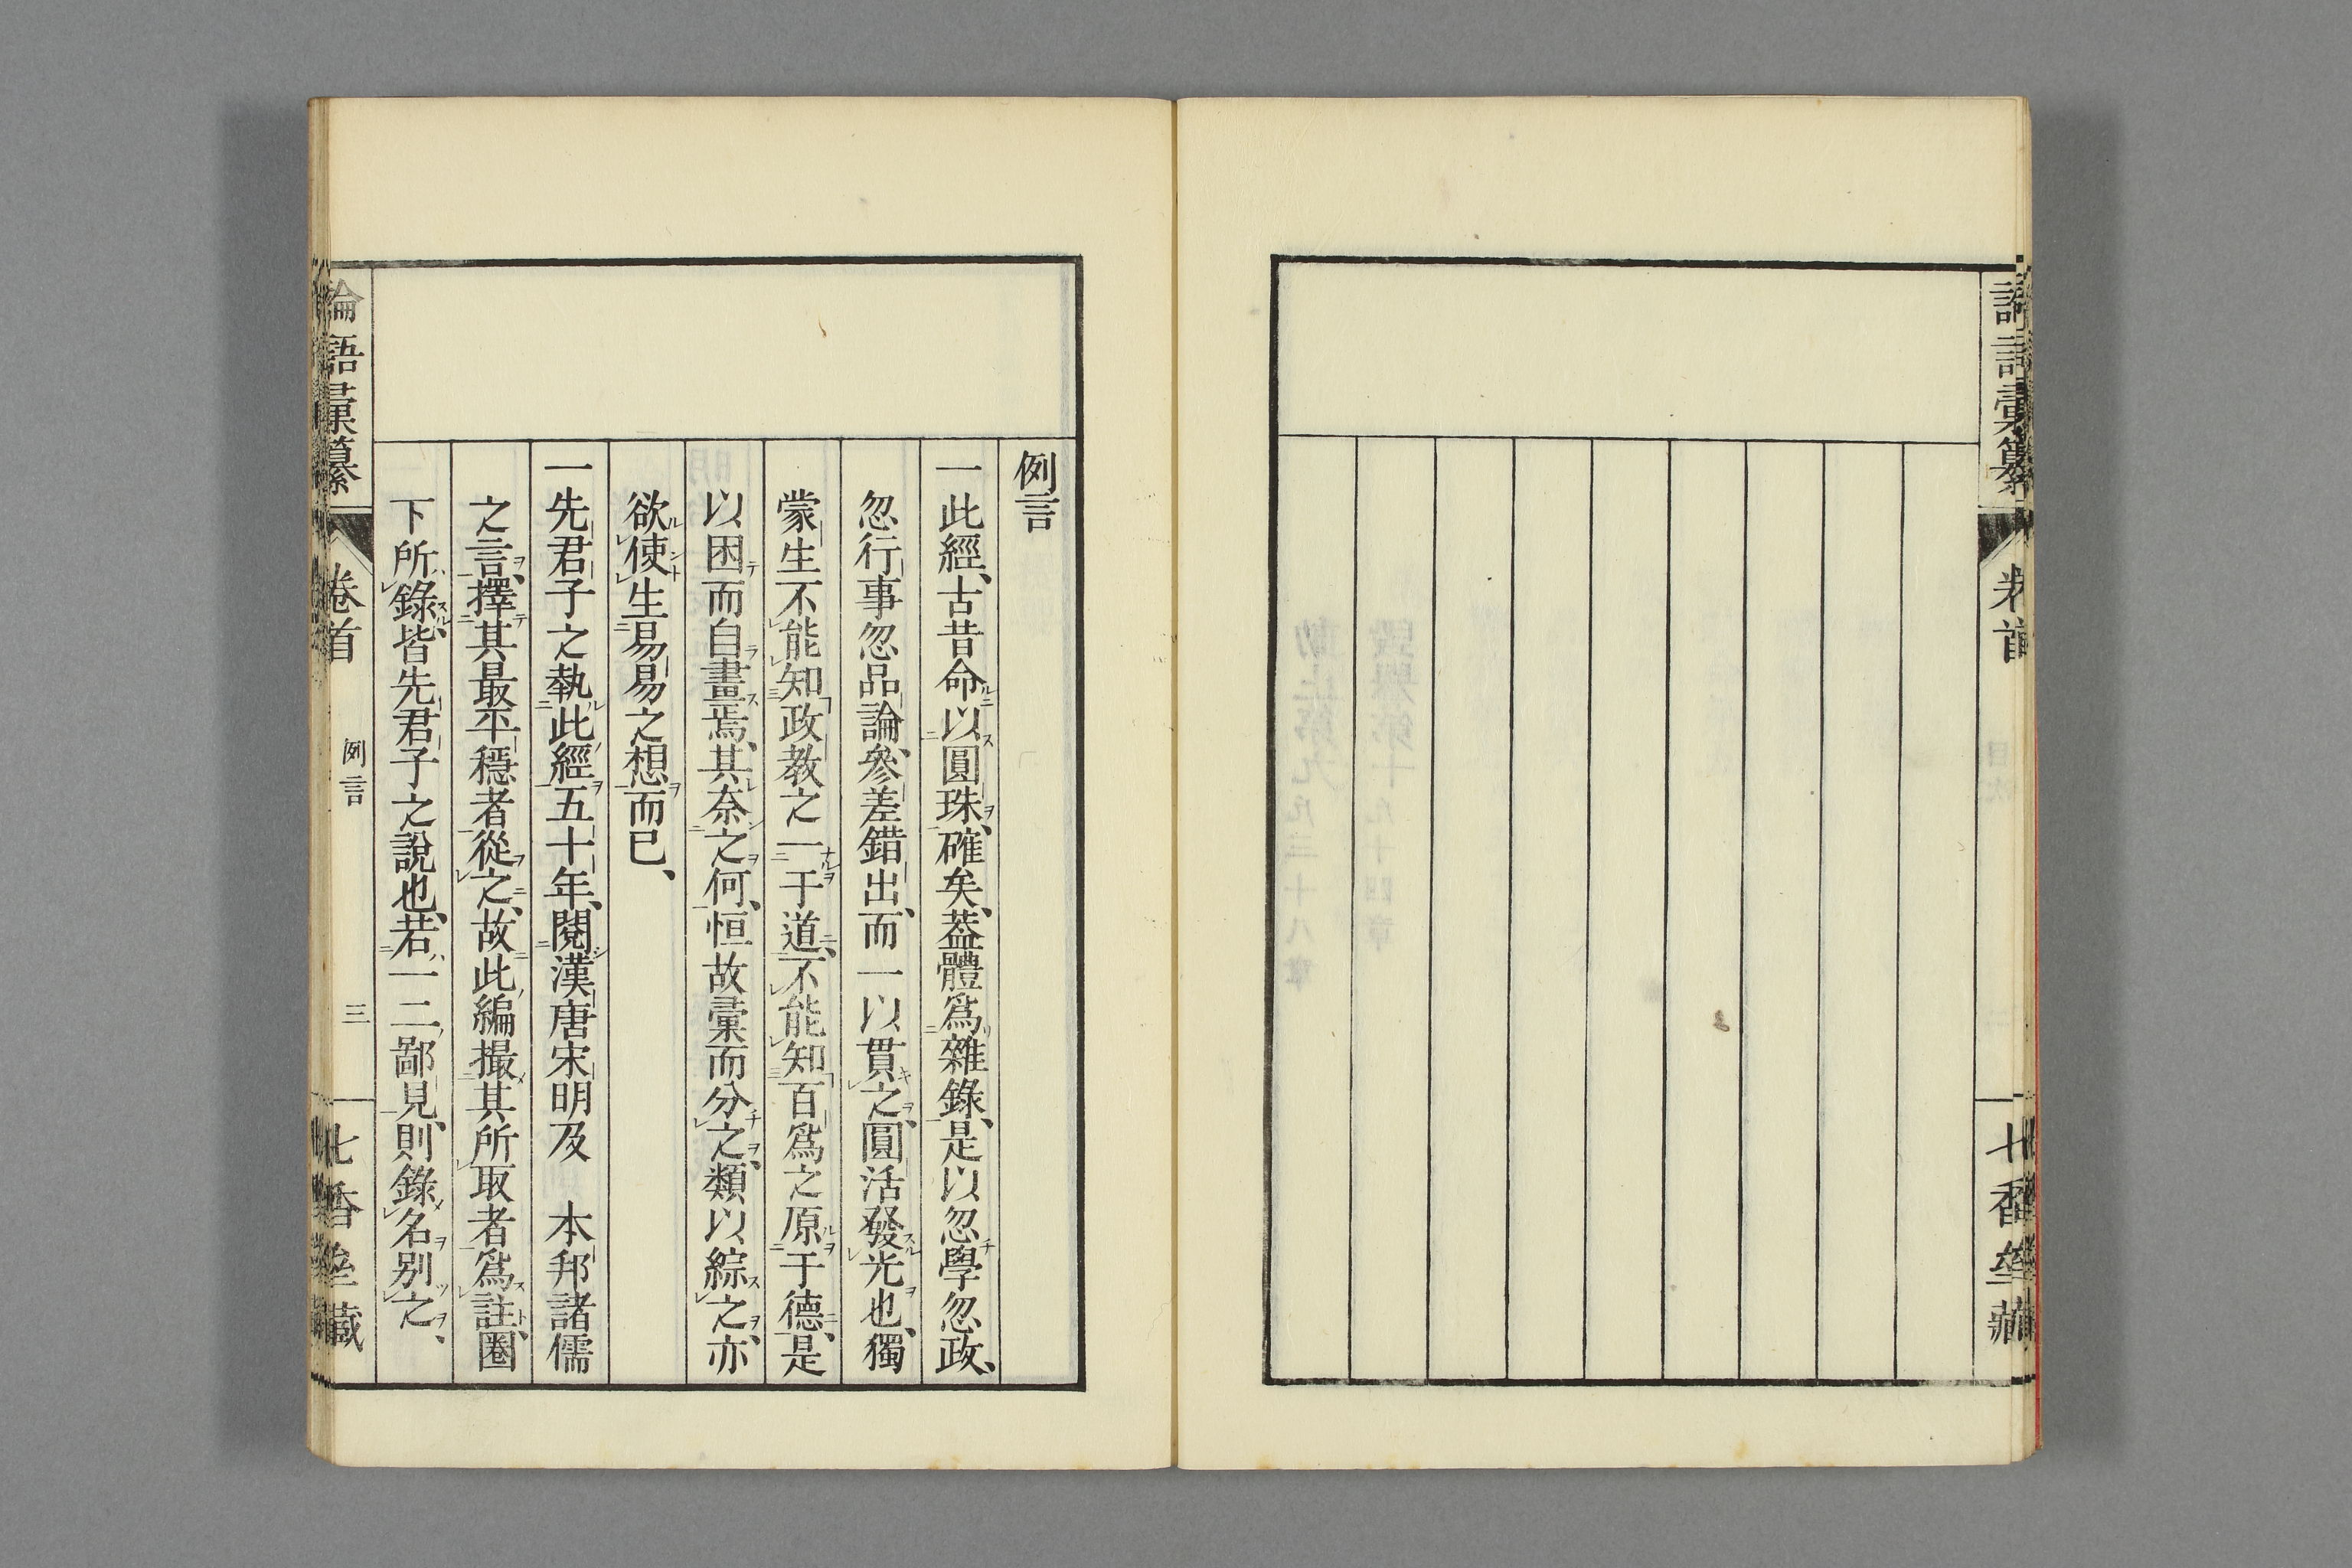 論語彙纂
卷首
七香齋藏
例言
一此經、古昔命以圓珠、確矣、葢體爲雜錄、是以忽學忽政、
忽行事忽品論、參差錯出、而一以貫之、圓活發光也、獨
蒙生不能知政教之一于道、不能知百爲之原于德、是
以困而自畫焉、其奈之何、恒故彙而分之、類以綜之、亦
欲使生易易之想而已、
一先君子之執此經五十年、閱漢唐宋明及　本邦諸儒
之言、擇其最平穩者從之、故此編撮其所取者爲註、圈
下所錄、皆先君子之說也、若一二鄙見、則錄名別之、
論語彙纂
卷首
例言
三
七香齋藏